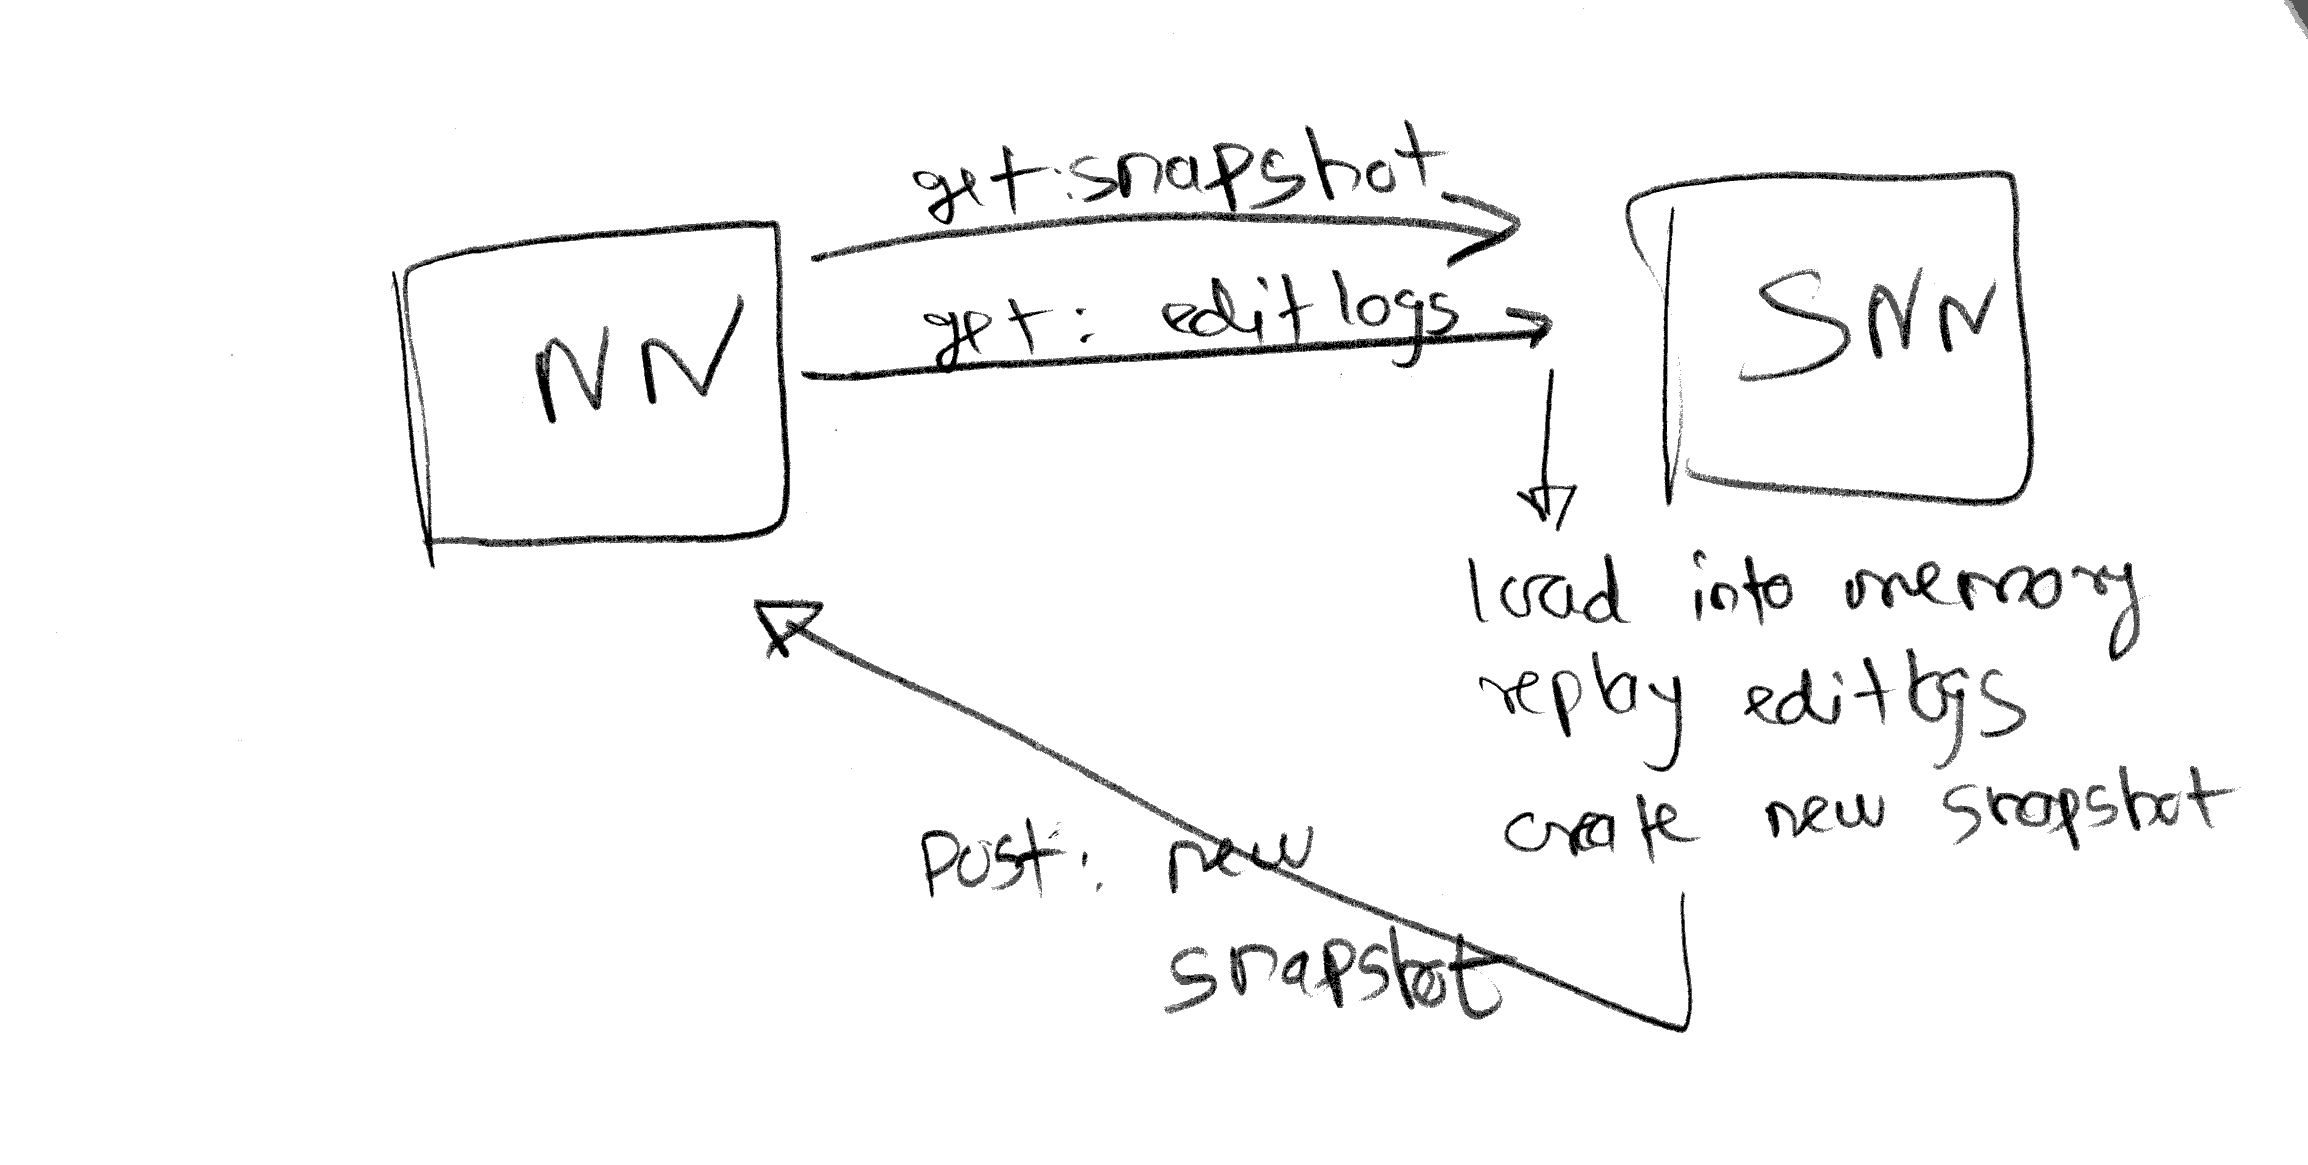 get: snapshot
NN
get: editlogs
SNN
load into memory
replay editlogs
create new snapshot
Post: new
snapshot